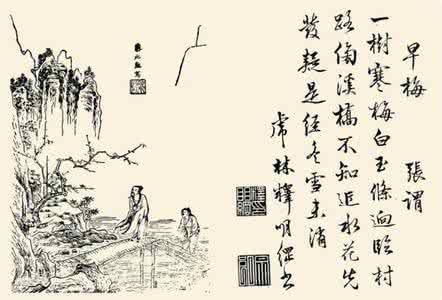 早梅 張謂
一樹寒梅白玉條迥臨村
路傍溪橋不知近水花先
發疑是經冬雪未消
虎林釋明書